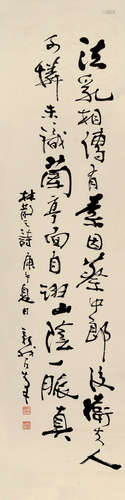 法乳相傳有業因蔡中郎後衛夫人
可憐未識蘭亭面自詡山陰一脈真
林散之詩庚午夏日